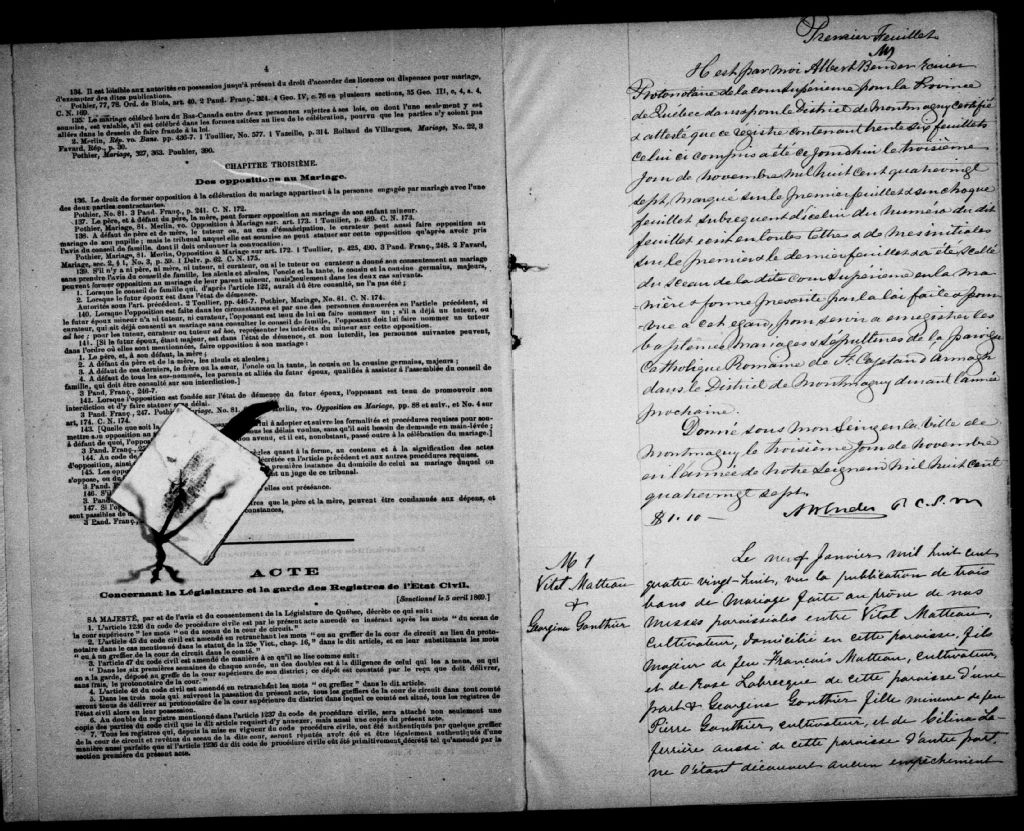 4
134. Il est loisible aux autorités en possession jusqu'à présent du droit d'accorder des licences ou dispenses pour mariage,
d'exempter des dites publications.
Pothier, 77, 78. Ord. de Blois, art. 40. 2 Pand. Franç., 324. 4 Geo. IV, c. 76 en plusieurs sections, 35 Geo. III, c. 4, s. 4,
C. N. 169.
135. Le mariage célébré hors du Bas-Canada entre deux personnes sujettes à ses lois, ou dont l'une seulement y est
soumise, est valable, s'il est célébré dans les formes usitées au lieu de la célébration, pourvu que les parties n'y soient pas
allées dans le dessein de faire fraude à la loi.
2. Merlin, Rép. vo. Bans. pp. 436-7. 1 Toullier, No. 577. 1 Vazeille, p. 314. Rolland de Villargues, Mariage, No. 22, 3
Favard, Rép., p. 36.
Pothier, Mariage, 327, 363. Pouhier, 390.
CHAPITRE TROISIÈME.
Des oppositions au Mariage.
136. Le droit de former opposition à la célébration du mariage appartient à la personne engagée par mariage avec l'une
des deux parties contractantes.
Pothier, No. 81. 3 Pand. Franç., p. 241. C. N. 172.
137. Le père, et à défaut du père, la mère, peut former opposition au mariage de son enfant mineur.
Pothier, Mariage, 81. Merlin, vo. Opposition à Mariage sur. art. 173. 1 Toullier, p. 489. C. N. 173.
138. A défaut de père et de mère, le tuteur ou, au cas d'émancipation, le curateur peut aussi faire opposition au
mariage de son pupille; mais le tribunal auquel elle est soumise ne peut statuer sur cette opposition qu'après avoir pris
l'avis du conseil de famille, dont il doit ordonner la convocation.
Pothier, Mariage, 81. Merlin, Opposition à Mariage sur art. 172. 1 Toullier, p. 425, 490. 3 Pand. Franç., 248. 2 Favard,
Mariage, sec. 2, § 1, No. 3, p. 59. 1 Delv. p. 62. C. N. 175.
139. S'il n'y a ni père, ni mère, ni tuteur, ni curateur, ou si le tuteur ou curateur a donné son consentement au mariage
sans prendre l'avis du conseil de famille, les aïeuls et aïeules, l'oncle et la tante, le cousin et la cousine germains, majeurs,
peuvent former opposition au mariage de leur parent mineur, mais seulement dans les deux cas suivants:
1. Lorsque le conseil de famille qui, d'après l'article 122, aurait dû être consulté, ne l'a pas été;
2. Lorsque le futur époux est dans l'état de démence.
Autorités sous l'art. précédent. 2 Toullier, pp. 446-7. Pothier, Mariage, No. 81. C. N. 174.
140. Lorsque l'opposition est faite dans les circonstances et par une des personnes énoncées en l'article précédent, si
le futur époux mineur n'a ni tuteur, ni curateur, l'opposant est tenu de lui en faire nommer un; s'il a déjà un tuteur, ou
curateur, qui ait déjà consenti au mariage sans consulter le conseil de famille, l'opposant doit lui faire nommer un tuteur
ad hoc; pour les tuteur, curateur ou tuteur ad hoc, représenter les intérêts du mineur sur cette opposition.
141. [Si le futur époux, étant majeur, est dans l'état de démence, et non interdit, les personnes suivantes peuvent,
dans l'ordre où elles sont mentionnées, faire opposition à son mariage:
1. Le père, et, à son défaut, la mère;
2. A défaut du père et de la mère, les aïeuls et aïeules;
3. A défaut de ces derniers, le frère ou la sœur, l'oncle ou la tante, le cousin ou la cousine germains, majeurs;
4. A défaut de tous les sus-nommés, les parents et alliés du futur époux, qualifiés à assister à l'assemblée du conseil de
famille, qui doit être consulté sur son interdiction.]
3 Pand. Franç., 246-7.
142. Lorsque l'opposition est fondée sur l'état de démence du futur époux, l'opposant est tenu de promouvoir son
interdiction et d'y faire statuer sans délai.
3 Pand. Franç., 247. Pothier, Mariage, No. 81. Merlin, vo. Opposition au Mariage, pp. 88 et suiv., et No. 4 sur
art. 174. C. N. 174.
143. [Quelle que soit la
i à adopter et suivre les formalités et procédures requises pour sou-
mettre son opposition au
les délais voulus, sans qu'il soit besoin de demande en main-levée;
à défaut de quoi, l'oppos
non avenu, et il est, nonobstant, passé outre à la célébration du mariage.]
3 Pand. Franç.
144. Au code de
règles quant à la forme, au contenu et à la signification des actes
d'opposition, ainsi
décrétée en l'article précédent et aux autres procédures requises.
145. Les oppo
première instance du domicile de celui au mariage duquel on
s'oppose, ou du
t un juge de ce tribunal.
3 Pand. F
elles ont préséance.
146. S'il
3 Pand.
res que le père et la mère, peuvent être condamnés aux dépens, et
147. Si l'op
sont passibles de d
constances,
3 Pand. Franç.,
ACTE
Concernant la Législature et la garde des Registres de l'Etat Civil.
[Sanctionné le 5 avril 1869.]
SA MAJESTÉ, par et de l'avis et du consentement de la Législature de Québec, décrète ce qui suit:
1. L'article 1236 du code de procédure civile est par le présent acte amendé en insérant après les mots "du sceau de
la cour supérieure" les mots "ou du sceau de la cour de circuit."
2. L'article 45 du code civil est amendé en retranchant les mots "ou au greffier de la cour de circuit au lieu du proto-
notaire dans le cas mentionné dans le statut de la 25e Vict., chap. 16," dans le dit article, et en leur substituant les mots
"ou à un greffier de la cour de circuit dans le comté."
3. l'article 47 du code civil est amendé de manière à ce qu'il se lise comme suit:
"Dans les six premières semaines de chaque année, un des doubles est à la diligence de celui qui les a tenus, ou qui
en a la garde, déposé au greffe de la cour supérieure de son district; ce dépôt est constaté par le reçu que doit délivrer,
sans frais, le protonotaire de la cour."
4. L'article 48 du code civil est amendé en retranchant les mots "ou greffier" dans le dit article.
5. Dans les trois mois qui suivront la passation du présent acte, tous les greffiers de la cour de circuit dans tout comté
seront tenus de délivrer au protonotaire de la cour supérieure du district dans lequel ce comté est situé, tous les registres de
l'état civil alors en leur possession.
6. Au double du registre mentionné dans l'article 1237 du code de procédure civile, sera attaché non seulement une
copie des parties du code civil que le dit article requiert d'y annexer, mais aussi une copie du présent acte.
7. Tous les registres qui, depuis la mise en vigueur du code procédure civile, ont été authentiqués par quelque greffier
de la cour de circuit et revêtus du sceau de la dite cour, seront réputés avoir été et être légalement authentiqués d'une
manière aussi parfaite que si l'article 1236 du dit code de procédure civile eût été primitivement décrété tel qu'amendé par la
section première du présent acte.
Premier Feuillet
Il est par moi Albert Bender Ecuier
Protonotaire de la cour Supérieure pour la Province
de Québec dans & pour le District de Montmagny certifié
& attesté que ce registre contenant trente six feuillets
celui ci compris a été ce jourd'hui le troisième
jour de novembre mil huit cent quatrevingt
sept, marqué sur le premier feuillet & sur chaque
feuillet subsequent d'icelui du numéro du dit
feuillet écrit en toutes lettres & de mes initiales
sur le premier & le dernier feuillets & a été scellé
du sceau de la dite cour Supérieure en la ma
nière & forme presente par la loi faite & pour
vue a cet egard, pour servir a enregistrer les
baptêmes mariages & sépultures de la paroisse
Catholique Romaine de St Cajetan d'Armagh
dans le District de Montmagny durant l'année
prochaine.
Donné sous mon seing en la ville de
Montmagny le troisième jour de novembre
en l'année de notre Seigneur mil huit cent
quatrevingt sept.
$1.10 — A Bender P. C. S. M
M 1
Vital Matteau
&
Georgina Gonthier
Le neuf Janvier mil huit cent
quatre vingt-huit, vu la publication de trois
bans de mariage faite au prône de nos
messes paroissiales entre Vital Matteau,
cultivateur, domicilié en cette paroisse, fils
majeur de feu Francois Matteau, cultivateur,
et de Rose Labrecque de cette paroisse d'une
part & Georgina Gonthier fille mineure de feu
Pierre Gonthier, cultivateur, et de Célina La
ferrière aussi de cette paroisse d'autre part,
ne s'étant découvert aucun empêchement